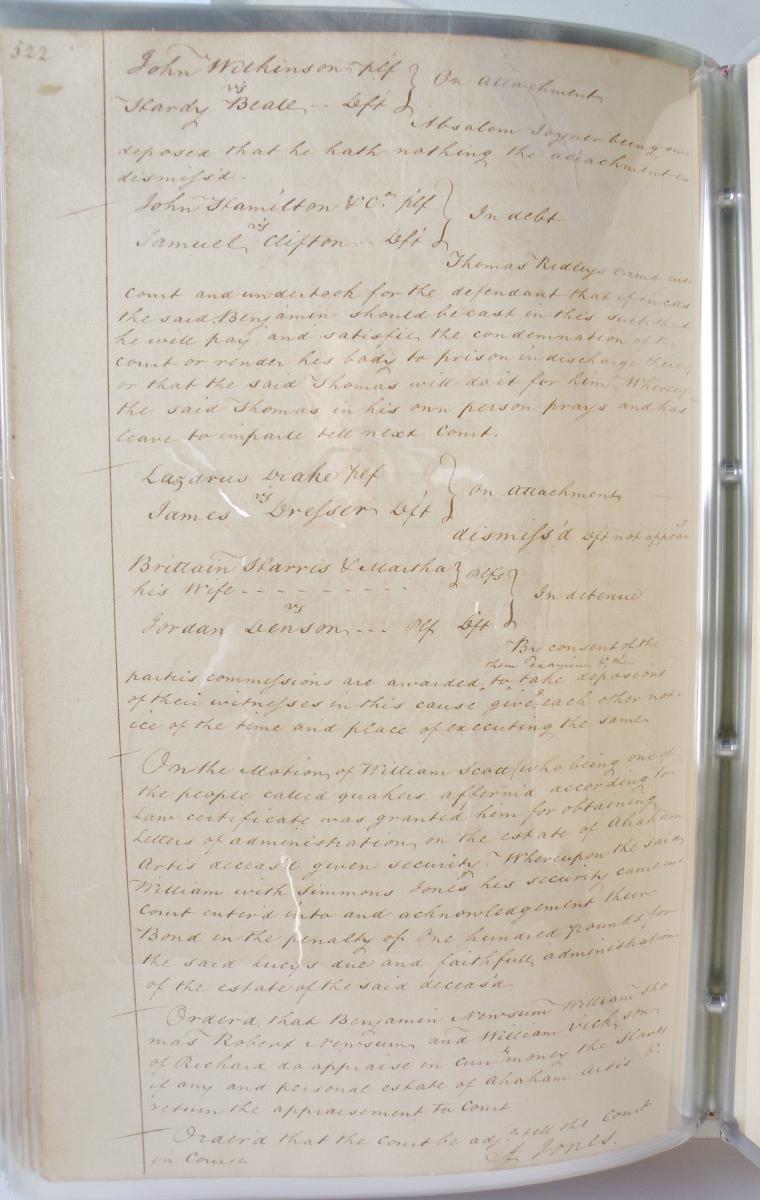 522
John Wilkinson plf } On attachment
vs
Hardy Beall -- Deft }
Absalom Joyner being
deposed that he hath nothing the attachment is
dismiss'd.
John Hamilton & Co. plf } In debt
vs
Samuel Clifton -- Deft }
Thomas Ridley came into
court and undertook for the defendant that if in case
the said Benjamin should be cast in this suit that
he will pay and satisfie the condemnation of the
court or render his body to prison in discharge thereof
or that the said Thomas will do it for him Whereupon
the said Thomas in his own person prays and has
leave to imparle till next Court.
Lazarus Drake plf } On attachment
vs
James Dresser Deft }
dismiss'd Deft not
Brittain Harris & Martha } plfs } In detenue
his Wife - - - - - - - - -
vs
Jordan Denson --- Plf Deft
By consent of the
them examine &
parties commissions are awarded to take
of their witnesses in this cause give each other not-
ice of the time and place of executing the same
On the Motion of William Scott (who being one of
the people called quakers affirm'd according to
Law certificate was granted him for obtaining
Letters of administration on the estate of Abraham
Artis deceas'd given security. Whereupon the said
William with Simmons Jones his security came into
Court enter'd into and acknowledgement their
Bond in the penalty of One hundred pounds, for
the said due and faithfull administration
of the estate of the said deceas'd
Order'd that Benjamin Newsum William Tho
mas Robert Newsum and William Vick son
of Richard do appraise in curr.t money the slaves
if any and personal estate of Abraham Artis &
return the appraisement to Court
Order'd that the court be adj.d till the Court
in Course
A. Jones.